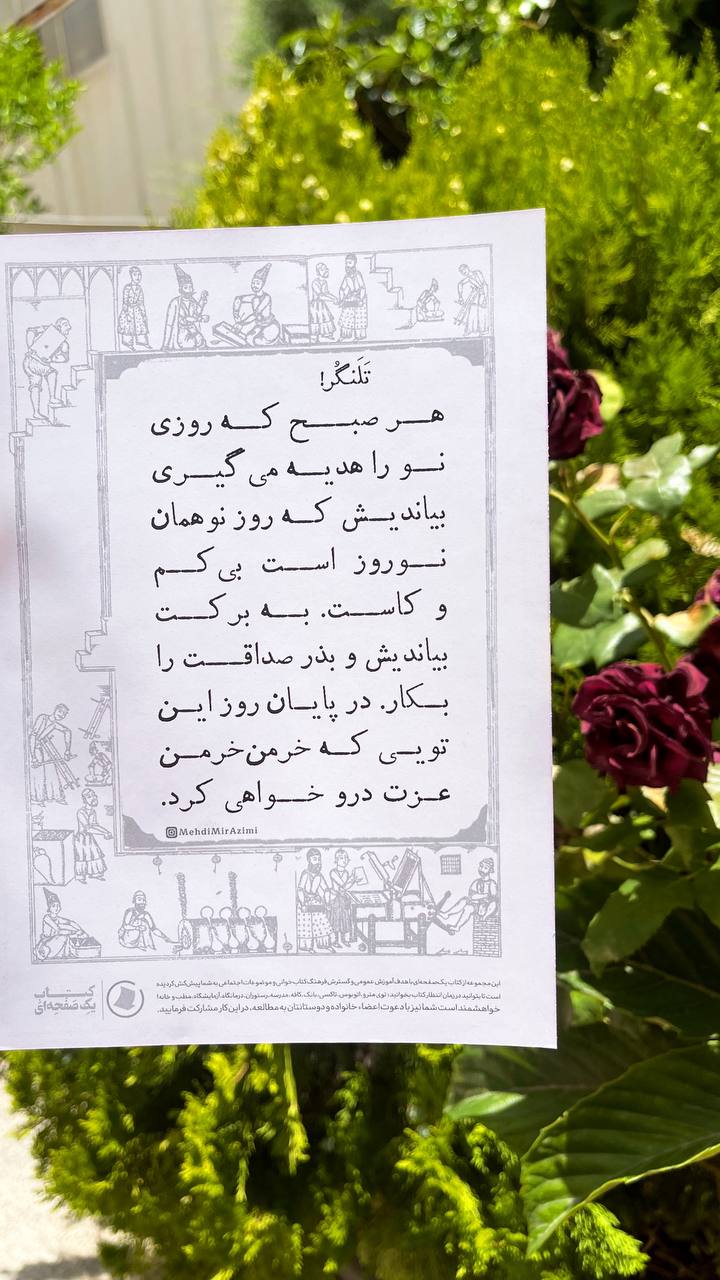 تَلَنگُر!
هر صبح که روزی
نو را هدیه می گیری
بیاندیش که روز نو همان
نوروز است بی کم
و کاست. به برکت
بیاندیش و بذر صداقت را
بکار. در پایان روز این
تویی که خرمن خرمن
عزت درو خواهی کرد.
MehdiMirAzimi
این مجموعه از کتاب یک صفحه‌ای با هدف آموزش عمومی و گسترش فرهنگ کتاب خوانی و موضوعات اجتماعی به شما پیش‌کش گردیده
است تا بتوانید در زمان انتظار کتاب بخوانید؛ توی مترو، اتوبوس، تاکسی، بانک، کافه، مدرسه، رستوران، درمانگاه، آزمایشگاه، مطب و خانه!
خواهشمند است شما نیز با دعوت اعضاء خانواده و دوستانتان به مطالعه، در این کار مشارکت فرمایید.
کتاب
یک صفحه‌ای